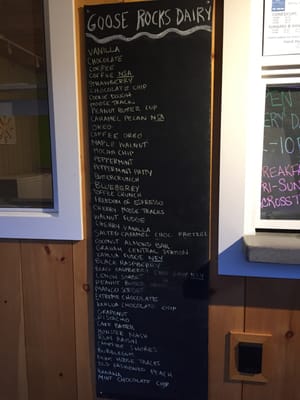 GOOSE ROCKS DAIRY
VANILLA
CHOCOLATE
COFFEE
COFFEE NSA
STRAWBERRY
CHOCOLATE CHIP
COOKIE DOUGH
MOOSE TRACK
PEANUT BUTTER CUP
CARAMEL PECAN NSA
OREO
COFFEE OREO
MAPLE WALNUT
MOCHA CHIP
PEPPERMINT
PEPPERMINT PATTY
BUTTERCRUNCH
BLUEBERRY
COFFEE CRUNCH
FREEDOM OF ESPRESSO
CHERRY MOOSE TRACKS
WALNUT FUDGE
CASHEW VANILLA
SALTED CARAMEL CHOC PRETZEL
COCONUT ALMOND BAR
GRAHAM CENTRAL STATION
VANILLA FUDGE NSA
BLACK RASPBERRY
BLACK RASPBERRY CHOC CHIP NSA
LEMON SORBET
PEANUT BUTTER
MANGO SORBET
EXTREME CHOCOLATE
VANILLA CHOCOLATE CHIP
GRAPENUT
PISTACHIO
CAKE BATTER
MONSTER MASH
RUM RAISIN
CAMPFIRE SMORES
BUBBLEGUM
MOOSE TRACKS
OLD FASHIONED PEACH
BANANA
MINT CHOCOLATE CHIP
PEN
RY DA
-10
REAKFA
RI-SUN
CROSST